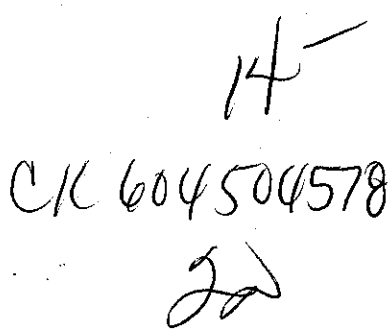 14-
CK 604504578